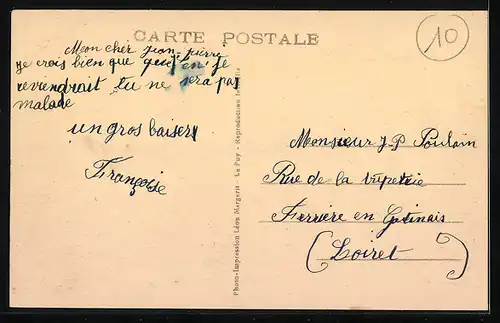 CARTE POSTALE
10
Mon cher jean-pierre
je crois bien que quej en je
reviendrait tu ne sera pas
malade
un gros baiser
Françoise
Photo-Impression Léon Margerit - Le Puy - Reproduction interdite
Monsieur J.P Poulain
Rue de la tripetrie
Ferrière en Gatinais
(Loiret)